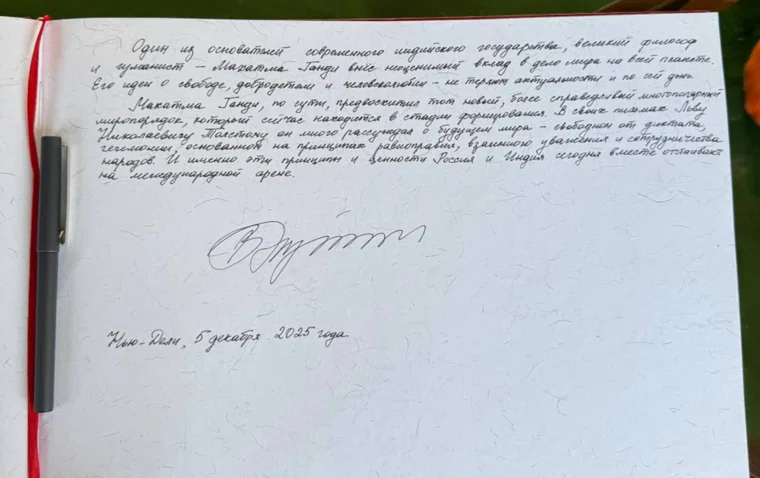 Один из основателей современного индийского государства, великий философ
и гуманист – Махатма Ганди внёс неоценимый вклад в дело мира на всей планете.
Его идеи о свободе, добродетели и человеколюбии – не теряют актуальности и по сей день.
Махатма Ганди, по сути, предвосхитил тот новый, более справедливый многополярный
миропорядок, который сейчас находится в стадии формирования. В своих письмах Льву
Николаевичу Толстому он много рассуждал о будущем мира – свободном от диктата,
гегемонии, основанном на принципах равноправия, взаимного уважения и сотрудничества
народов. И именно эти принципы и ценности Россия и Индия сегодня вместе отстаивают
на международной арене.
В Путин
Нью-Дели, 5 декабря 2025 года